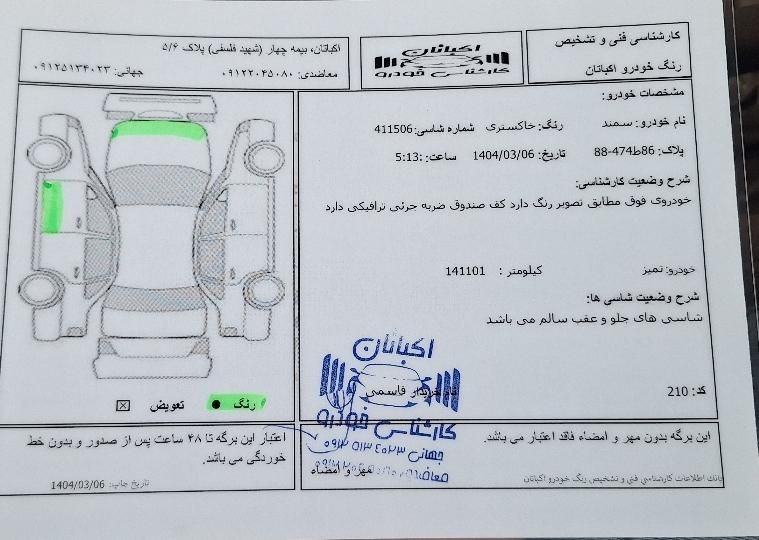 کارشناسی فنی و تشخیص
رنگ خودرو اکباتان
اکباتان
کارشناسی خودرو
اکباتان، بیمه چهار (شهید فلسفی) پلاک ۵/۶
معاضدی: ۰۹۱۲۲۰۴۵۰۸۰ جهانی: ۰۹۱۲۵۱۳۴۰۲۳
مشخصات خودرو:
نام خودرو: سمند رنگ: خاکستری شماره شاسی: 411506
پلاک: 86ط474-88 تاریخ: 1404/03/06 ساعت: 5:13:
شرح وضعیت کارشناسی:
خودروی فوق مطابق تصویر رنگ دارد کف صندوق ضربه جزئی ترافیکی دارد
خودرو: تمیز کیلومتر : 141101
شرح وضعیت شاسی ها:
شاسی های جلو و عقب سالم می باشد
کد: 210 خریدار قاسمی
اکباتان
کارشناسی خودرو
جهانی ۰۹۱۲ ۵۱۳ ۴۰۲۳
معاضدی
رنگ تعویض
این برگه بدون مهر و امضاء فاقد اعتبار می باشد.
مهر و امضاء
بانک اطلاعات کارشناسی فنی و تشخیص رنگ خودرو اکباتان
اعتبار این برگه تا ۴۸ ساعت پس از صدور و بدون خط
خوردگی می باشد.
تاریخ چاپ: 1404/03/06